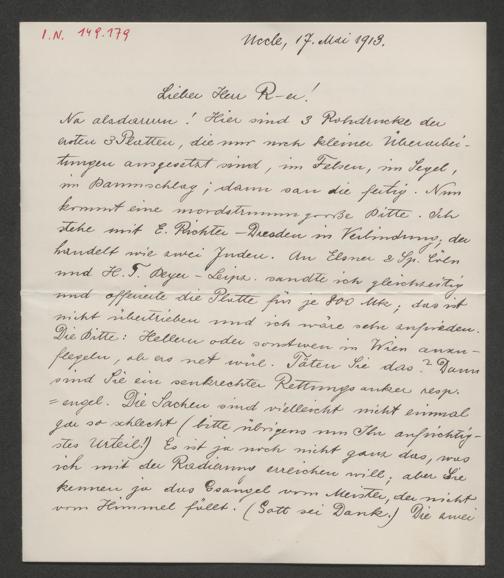 I.N. 149.179
Uccle, 17. Mai 1913.
Lieber Herr R-er!
Na alsdarum! Hier sind 3 Rohdrucke der
ersten 3 Platten, die nur noch kleiner Überarbei-
tungen ausgesetzt sind, im Felsen, im Segel,
im Baumschlag; dann san die fertig. Nun
kommt eine mordstrumm große Bitte. Ich
stehe mit E. Richter-Dresden in Verbindung, der
handelt wie zwei Juden. An Elsner & Sp. Cöln
und H. T. Beyer-Leipz. sandte ich gleichzeitig
und offerirte die Platte für je 800 Mk; das ist
nicht übertrieben und ich wäre sehr zufrieden.
Die Bitte: Hellern oder sonstwen in Wien anzu-
flegeln, ob ers net wül. Täten Sie das? Dann
sind Sie ein senkrechter Rettungsanker resp.
=engel. Die Sachen sind vielleicht nicht einmal
gar so schlecht (bitte übrigens um Ihr aufrichtig-
stes Urteil!) Es ist ja noch nicht ganz das, was
ich mit der Radierung erreichen will; aber Sie
kennen ja das Gsangel vom Meister, der nicht
vom Himmel fällt. (Gott sei Dank.) Die zwei